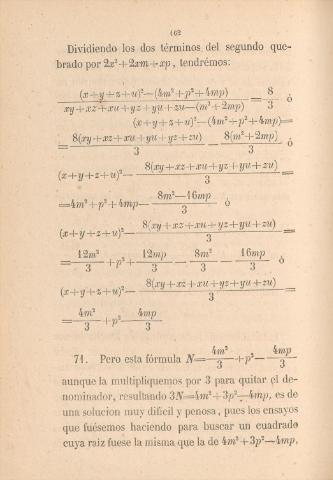 162
Dividiendo los dos términos del segundo que-
brado por 2x²+2xm+xp, tendrémos:
(x+y+z+u)²—(4m²+p²+4mp) / xy+xz+xu+yz+yu+zu—(m²+2mp) = 8/3 ó
(x+y+z+u)²—(4m²+p²+4mp)=
= 8(xy+xz+xu+yu+yz+zu)/3 — 8(m²+2mp)/3 ó
(x+y+z+u)²— 8(xy+xz+xu+yz+yu+zu)/3 =
=4m²+p²+4mp— 8m²—16mp/3 ó
(x+y+z+u)²— 8(xy+xz+xu+yz+yu+zu)/3 =
= 12m²/3 +p²+ 12mp/3 — 8m²/3 — 16mp/3 ó
(x+y+z+u)²— 8(xy+xz+xu+yz+yu+zu)/3 =
= 4m²/3 +p²— 4mp/3
71. Pero esta fórmula N= 4m²/3 +p²— 4mp/3
aunque la multipliquemos por 3 para quitar el de-
nominador, resultando 3N=4m²+3p²—4mp, es de
una solucion muy dificil y penosa, pues los ensayos
que fuésemos haciendo para buscar un cuadrado
cuya raiz fuese la misma que la de 4m²+3p²—4mp,